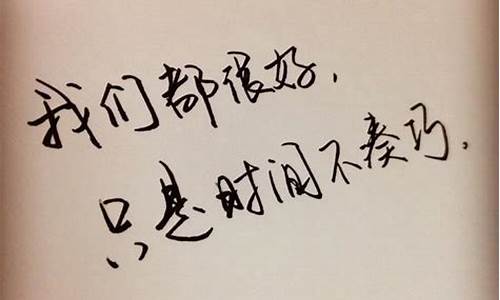 我们都很好.
只是时间不奏巧.